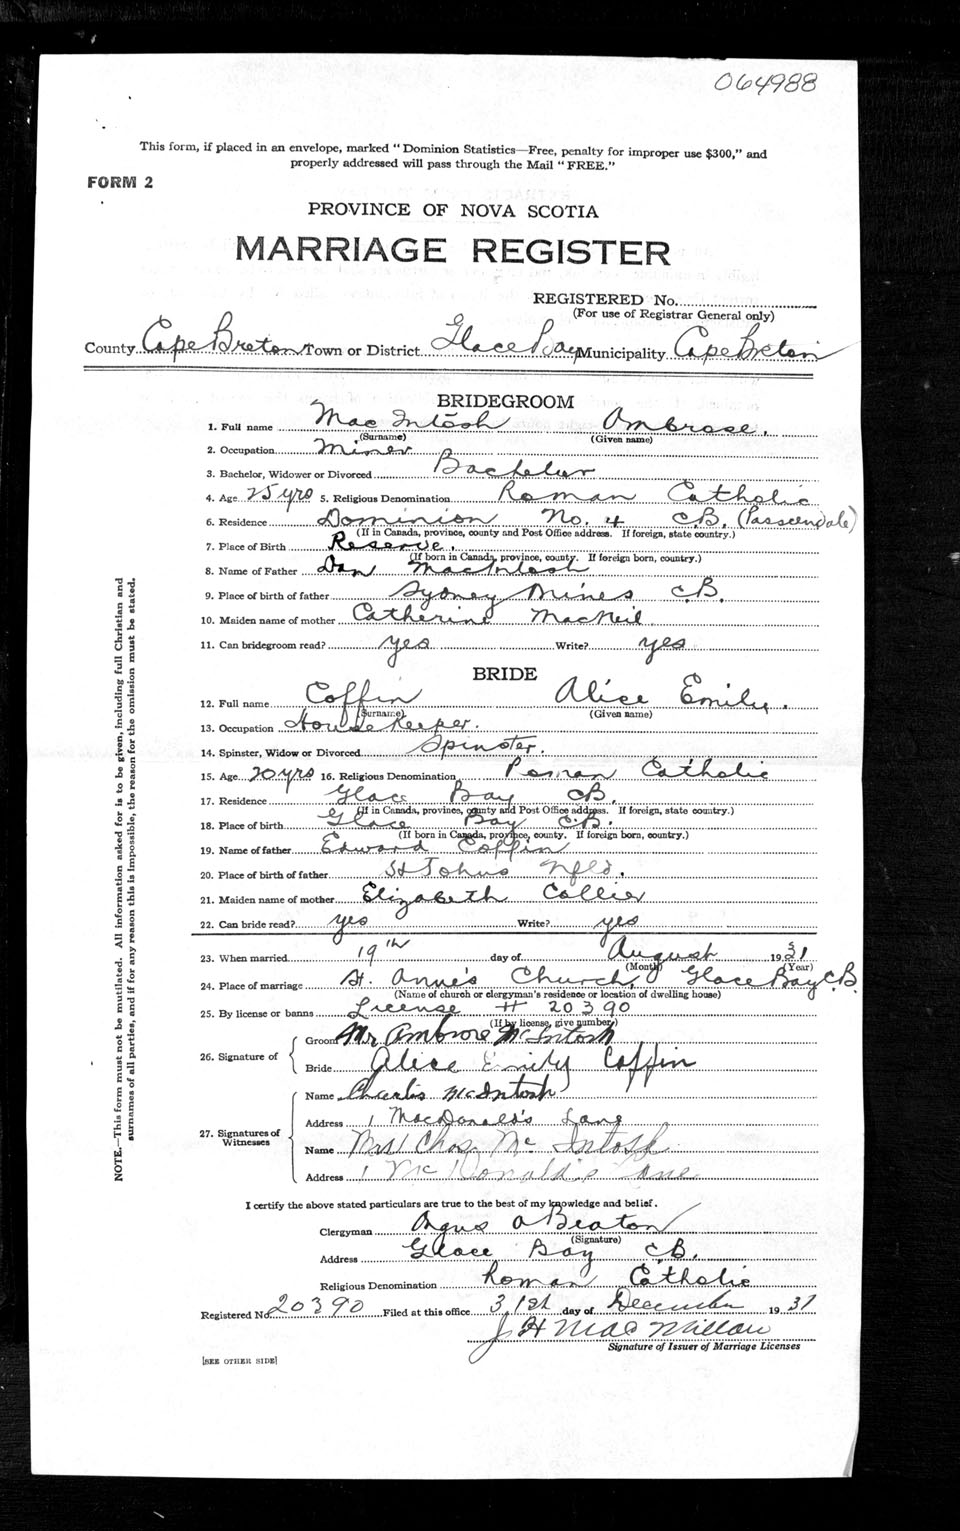 064988
This form, if placed in an envelope, marked "Dominion Statistics—Free, penalty for improper use $300," and
properly addressed will pass through the Mail "FREE."
FORM 2
PROVINCE OF NOVA SCOTIA
MARRIAGE REGISTER
REGISTERED No.
(For use of Registrar General only)
County Cape Breton Town or District Glace Bay Municipality Cape Breton
BRIDEGROOM
1. Full name MacIntosh Ambrose.
(Surname) (Given name)
2. Occupation Miner
3. Bachelor, Widower or Divorced Bachelor
4. Age 25 yrs 5. Religious Denomination Roman Catholic
6. Residence Dominion No. 4 C.B. (Passcendale)
(If in Canada, province, county and Post Office address. If foreign, state country.)
7. Place of Birth Reserve.
(If born in Canada, province, county. If foreign born, country.)
8. Name of Father Dan MacIntosh
9. Place of birth of father Sydney Mines C.B.
10. Maiden name of mother Catherine MacNeil
11. Can bridegroom read? yes Write? yes
BRIDE
12. Full name Coffin Alice Emily.
(Surname) (Given name)
13. Occupation House Keeper.
14. Spinster, Widow or Divorced Spinster.
15. Age 20 yrs 16. Religious Denomination Roman Catholic
17. Residence Glace Bay C.B.
(If in Canada, province, county and Post Office address. If foreign, state country.)
18. Place of birth Glace Bay C.B.
(If born in Canada, province, county. If foreign born, country.)
19. Name of father Edward Coffin
20. Place of birth of father St Johns Nfld.
21. Maiden name of mother Elizabeth Collier
22. Can bride read? yes Write? yes
23. When married 19th day of August 1931
(Month) (Year)
24. Place of marriage St. Anne's Church, Glace Bay C.B.
(Name of church or clergyman's residence or location of dwelling house)
25. By license or banns License # 20390
(If by license, give number)
26. Signature of
Groom Mr Ambrose McIntosh
Bride Alice Emily Coffin
27. Signatures of Witnesses
Name Charles McIntosh
Address 1 MacDonald's Lane
Name Mrs Chas Mc Intosh
Address 1 McDonald's Lane
I certify the above stated particulars are true to the best of my knowledge and belief.
Clergyman Angus A Beaton
(Signature)
Address Glace Bay C.B.
Religious Denomination Roman Catholic
Registered No. 20390 Filed at this office 31st day of December 1931
J H MacMillan
Signature of Issuer of Marriage Licenses
[SEE OTHER SIDE]
NOTE.—This form must not be mutilated. All information asked for is to be given, including full Christian and
surnames of all parties, and if for any reason this is impossible, the reason for the omission must be stated.